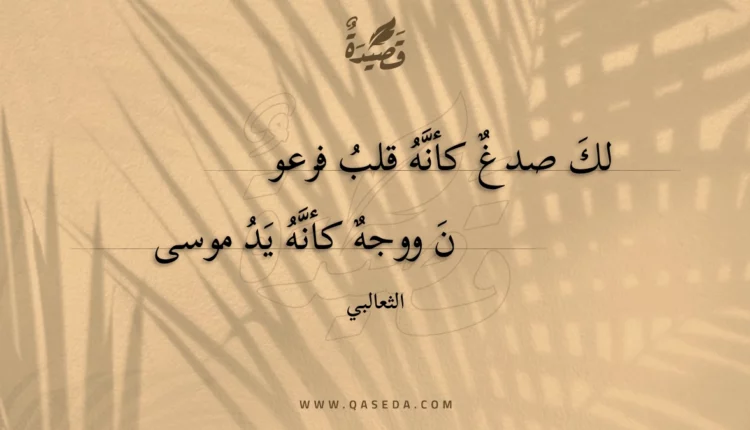 قَصِيْدَةٌ
لكَ صدغٌ كأنَّهُ قلبُ فرعو
نَ ووجهٌ كأنَّهُ يَدُ موسى
الثعالبي
WWW.QASEDA.COM